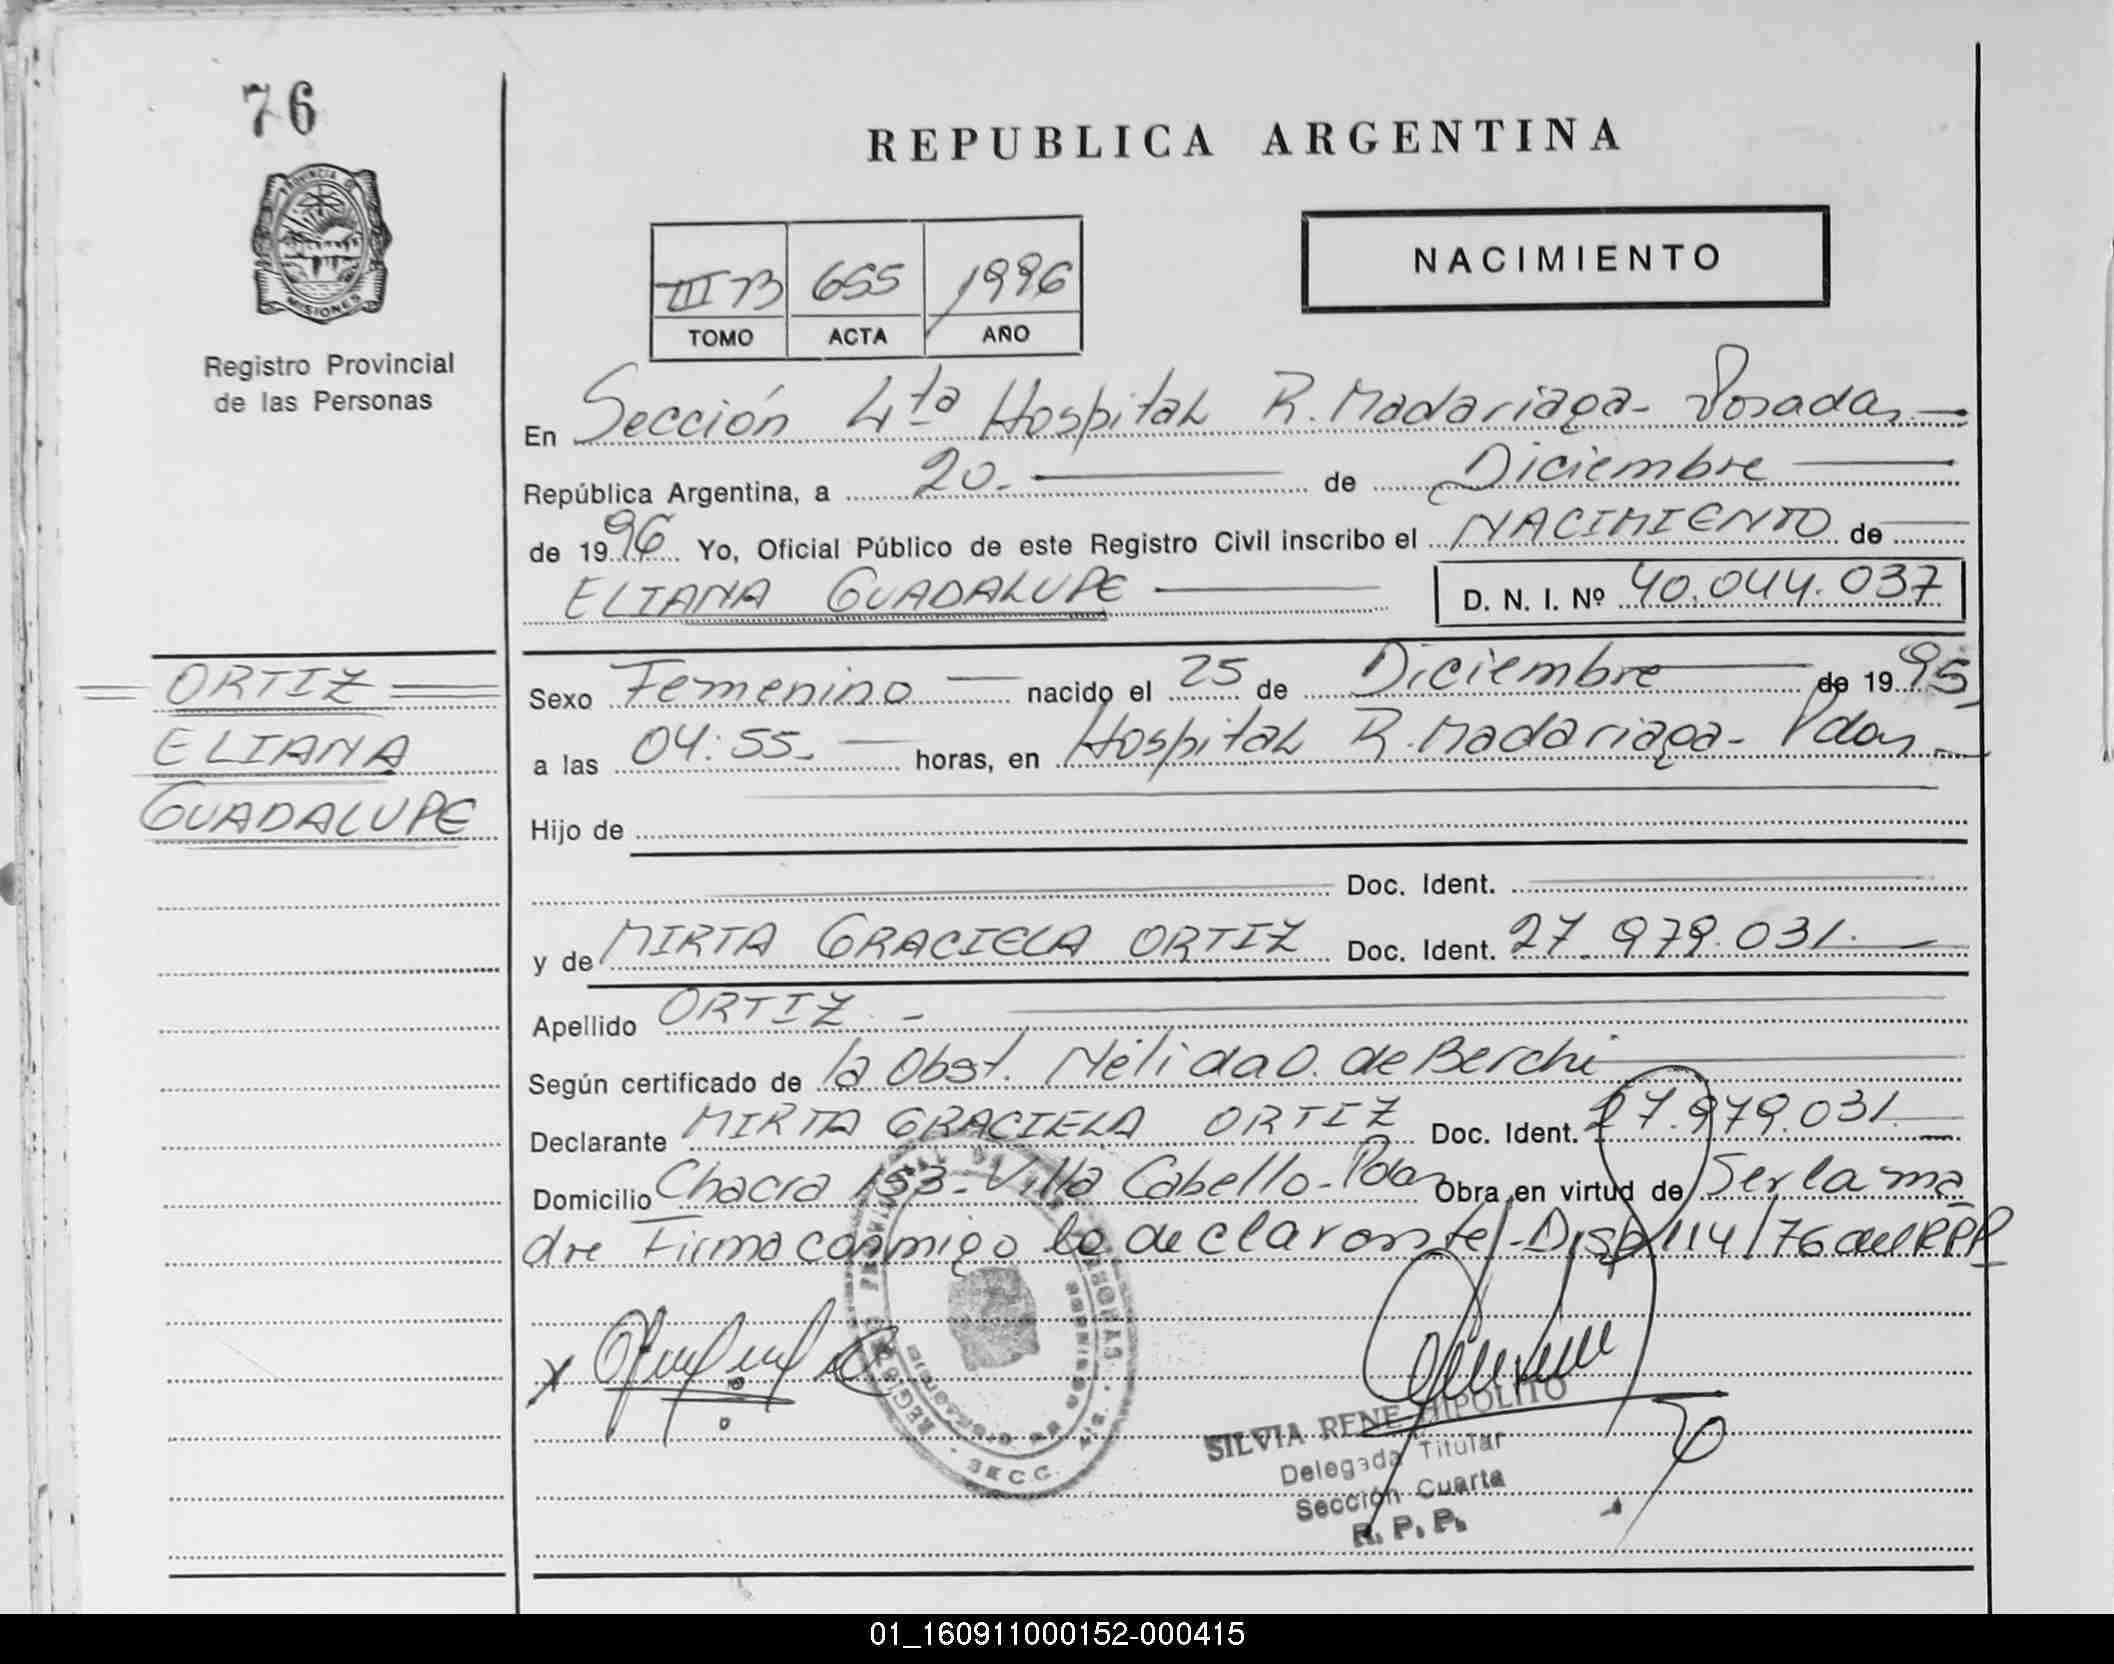 76
REPUBLICA ARGENTINA
PROVINCIA DE
MISIONES
Registro Provincial
de las Personas
NACIMIENTO
III B 655 1996
TOMO ACTA AÑO
En Sección 4ta Hospital R. Madariaga - Posadas
República Argentina, a 20.- de Diciembre
de 1996 Yo, Oficial Público de este Registro Civil inscribo el NACIMIENTO de
ELIANA GUADALUPE D. N. I. Nº 40.044.037
ORTIZ
ELIANA
GUADALUPE
Sexo Femenino nacido el 25 de Diciembre de 1995
a las 04:55.- horas, en Hospital R. Madariaga - Pdas
Hijo de
Doc. Ident.
y de MIRTA GRACIELA ORTIZ Doc. Ident. 27.979.031.
Apellido ORTIZ.-
Según certificado de la Obst. Nélida O. de Berchi
Declarante MIRTA GRACIELA ORTIZ Doc. Ident. 27.979.031.
Domicilio Chacra 153 - Villa Cabello - Pdas Obra en virtud de Ser la ma
dre Firma conmigo la declarante/- Disp 114/76 del RPP
SECC.
SILVIA RENE HIPOLITO
Delegada Titular
Sección Cuarta
R. P. P.
01_160911000152-000415